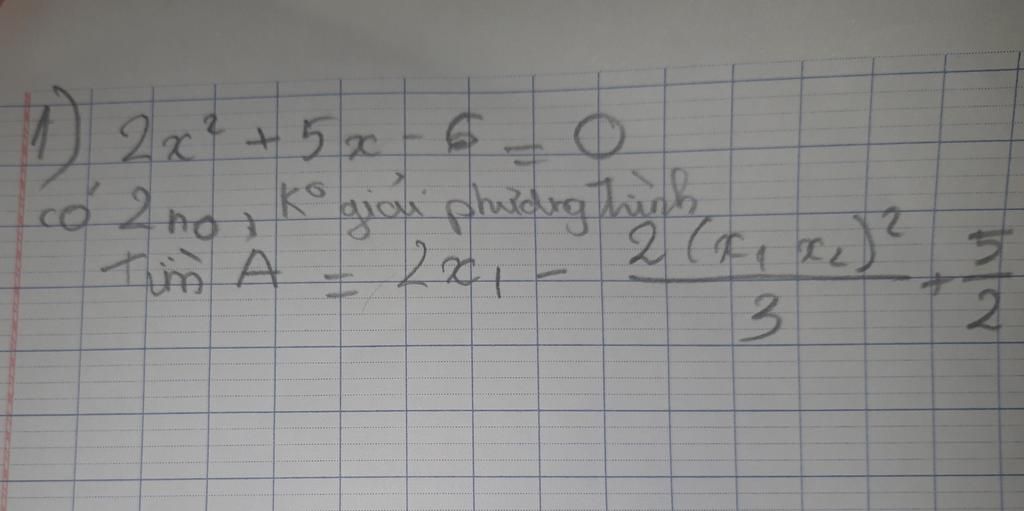 1) 2x² + 5x - 6 = 0
có 2 no, Kº giải phương trình
Tìm A = 2x₁ - 2(x₁ x₂)²/3 + 5/2